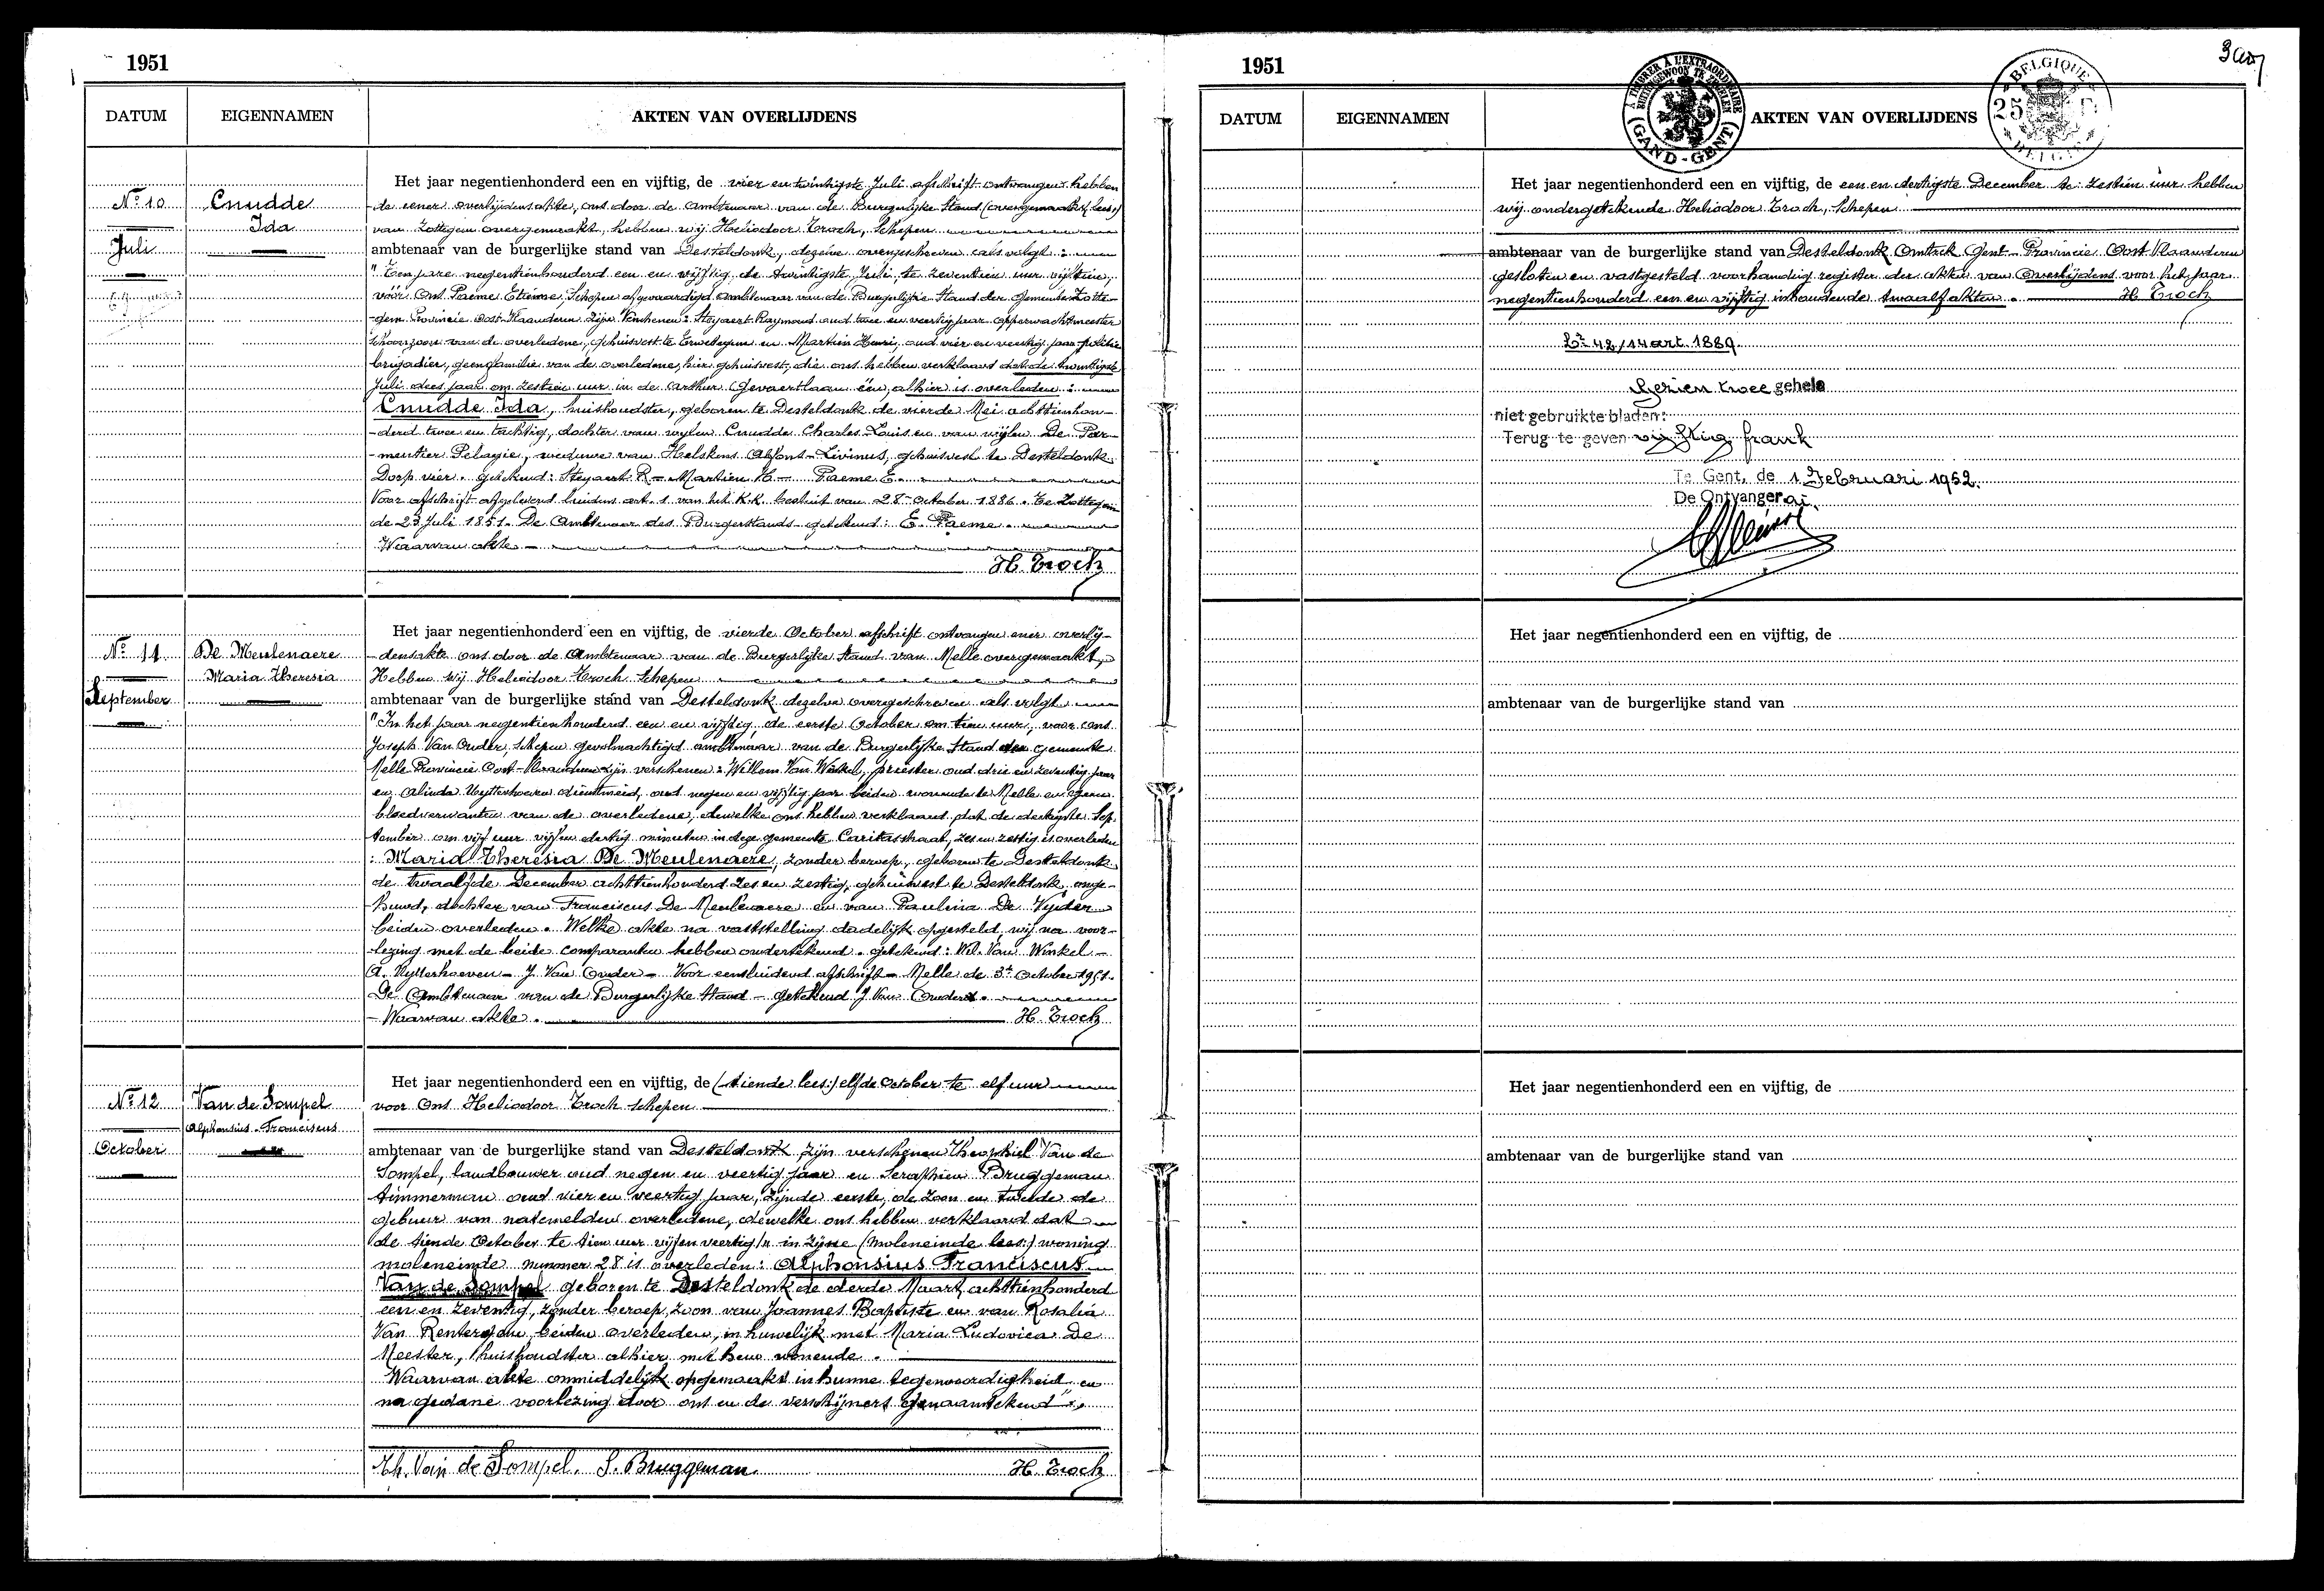 1951
DATUM EIGENNAMEN AKTEN VAN OVERLIJDENS
Het jaar negentienhonderd een en vijftig, de vier en twintigste Juli afschrift ontvangen hebben
No 10 Cnudde de eener overlijdensakte, ons door de Ambtenaar van de Burgerlijke Stand (overgemaakt, lees:)
Ida van Zottegem overgemaakt, hebben wij Heliodoor Troch, Schepen
Juli ambtenaar van de burgerlijke stand van Desteldonk, degene overgeschreven als volgt:
"Ten jare negentienhonderd een en vijftig, de twintigste Juli, te zeventien uur vijftien,
vóór Ons Paeme Etienne, Schepen afgevaardigd ambtenaar van de Burgerlijke Stand der Gemeente Zotte-
gem Provincie Oost-Vlaanderen zijn Verschenen: Steyaert Raymond oud twee en veertig jaar opperwachtmeester
schoonzoon van de overledene, gehuisvest te Erwetegem en Martien Henri, oud vier en veertig jaar politie
brigadier, geen familie van de overledene, hier gehuisvest, die ons hebben verklaard dat de twintigste
Juli dees jaar om zestien uur in de Arthur Gevaertlaan één, alhier is overleden:
Cnudde Ida, huishoudster, geboren te Desteldonk de vierde Mei achttienhon-
-derd twee en tachtig, dochter van wijlen Cnudde Charles-Louis en van wijlen De Par-
-mentier Pelagie, weduwe van Helskens Alfons-Livinus, gehuisvest te Desteldonk
Dorp vier. getekend: Steyaert R - Martien H - Paeme E.
Voor afschrift afgeleverd luidens art. 1 van het K.K. besluit van 28 October 1886. te Zottegem
de 23 Juli 1951. De Ambtenaar des Burgerstands getekend: E. Paeme.
Waarvan akte
H. Troch
Het jaar negentienhonderd een en vijftig, de vierde October afschrift ontvangen ener overlij-
No 11 De Meulenaere -densakte ons door de Ambtenaar van de Burgerlijke Stand van Melle overgemaakt,
Maria Theresia Hebben wij Heliodoor Troch Schepen
September ambtenaar van de burgerlijke stand van Desteldonk dezelve overgeschreven als volgt
"In het jaar negentienhonderd een en vijftig, de eerste October om tien uur, voor ons
Joseph Van Ouder, schepen gevolmachtigd ambtenaar van de Burgerlijke Stand der gemeente
Melle Provincie Oost-Vlaanderen zijn verschenen: Willem Van Winkel, priester oud drie en zeventig jaar
en Alinda Uytterhoeven dienstmeid, oud negen en vijftig jaar beiden wonende te Melle en geen
bloedverwanten van de overledene, dewelke ons hebben verklaard, dat de dertigste Sep-
tember om vijf uur vijf en dertig minuten in deze gemeente Caritasstraat, zes en zestig is overleden
: Maria Theresia De Meulenaere, zonder beroep, geboren te Desteldonk
de twaalfde December achttienhonderd zes en zestig, gehuisvest te Desteldonk, onge-
huwd, dochter van Franciscus De Meulenaere en van Paulina De Vyder
beiden overleden. Welke akte na vaststelling dadelijk opgesteld, wij na voor-
lezing met de beide comparanten hebben ondertekend. getekend: Wil. Van Winkel -
A. Uytterhoeven - J. Van Ouder - Voor eensluidend afschrift - Melle de 3e October 1951.
De Ambtenaar van de Burgerlijke Stand - getekend J. Van Ouder.
- Waarvan akte. H. Troch
Het jaar negentienhonderd een en vijftig, de (tiende lees:) elfde October te elf uur
No 12 Van de Sompel voor Ons Heliodoor Troch schepen
Alphonsius-Franciscus
October ambtenaar van de burgerlijke stand van Desteldonk zijn verschenen Theophiel Van de
Sompel, landbouwer oud negen en veertig jaar en Seraphien Bruggeman
timmerman oud vier en veertig jaar, zijnde eerste, de zoon en tweede de
gebuur van natemelden overledene, dewelke ons hebben verklaard dat
de tiende October te tien uur vijf en veertig /n in zijne (moleneinde lees:) woning
moleneinde nummer 28 is overleden: Alphonsius Franciscus
Van de Sompel geboren te Desteldonk de derde Maart achttienhonderd
een en zeventig, zonder beroep, zoon van Joannes Baptiste en van Rosalia
Van Renterghem, beiden overleden, in huwelijk met Maria Ludovica De
Meester, huishoudster alhier met hem wonende.
Waarvan akte onmiddelijk opgemaakt in hunne tegenwoordigheid en
na gedane voorlezing door ons en de verschijners genaamtekend".
Th. Van de Sompel. S. Bruggeman. H. Troch
1951
DATUM EIGENNAMEN AKTEN VAN OVERLIJDENS
A TIMBRER A L'EXTRAORDINAIRE
BUITENGEWOON TE ZEGELEN
(GAND-GENT)
BELGIQUE
25
BELGIE
Het jaar negentienhonderd een en vijftig, de een en dertigste December te zestien uur hebben
wij ondergetekende Heliodoor Troch, Schepen
ambtenaar van de burgerlijke stand van Desteldonk Omtrek Gent - Provincie Oost Vlaanderen
gesloten en vastgesteld voorhandig register der akten van Overlijdens voor het jaar
negentienhonderd een en vijftig inhoudende twaalf akten. H. Troch
42/14 art. 1889.
Gezien twee gehele
niet gebruikte bladen:
Terug te geven vijftig frank
Te Gent, de 1 Februari 1952.
De Ontvanger a.i.
Het jaar negentienhonderd een en vijftig, de
ambtenaar van de burgerlijke stand van
Het jaar negentienhonderd een en vijftig, de
ambtenaar van de burgerlijke stand van